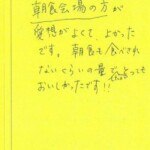 朝食会場の方が
愛想がよくて、よかった
です。朝食も食べきれ
ないくらいの量で、とっても
おいしかったです!!